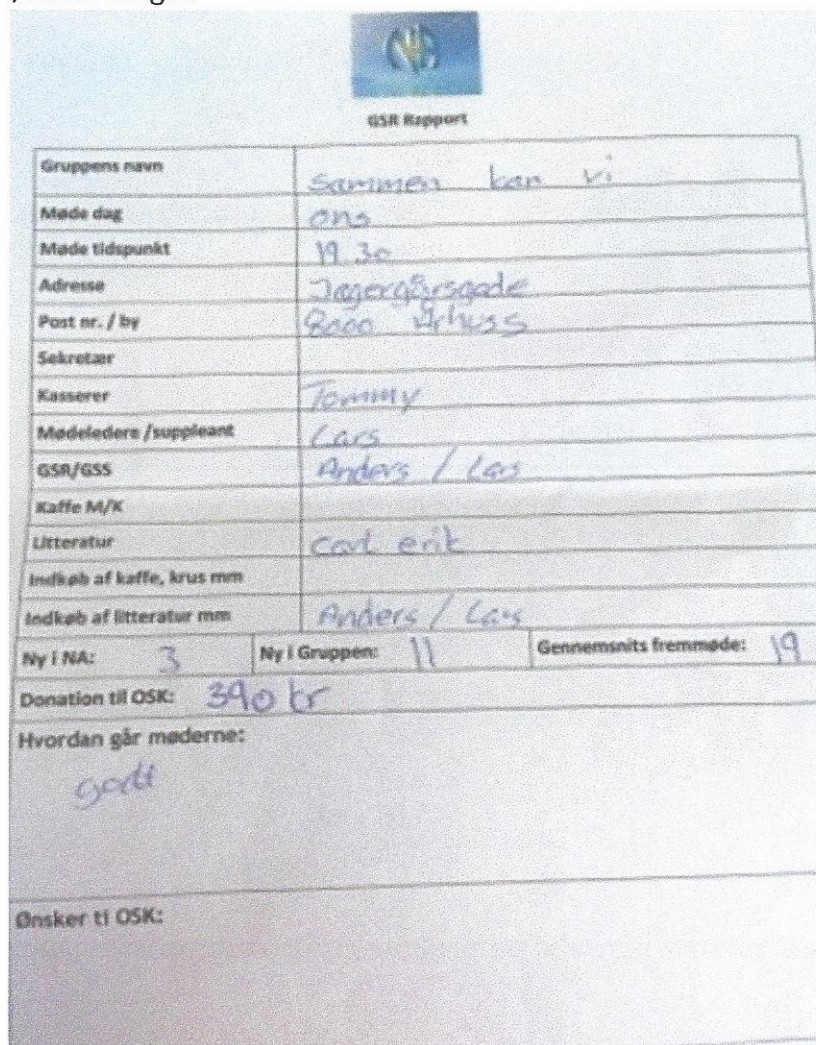 NA
GSR Rapport
Gruppens navn Sammen kan vi
Møde dag ons
Møde tidspunkt 19.30
Adresse Jægergårsgade
Post nr. / by 8000 Århuss
Sekretær
Kasserer Tommy
Mødeledere /suppleant Lars
GSR/GSS Anders / Lars
Kaffe M/K
Litteratur Carl erik
Indkøb af kaffe, krus mm
Indkøb af litteratur mm Anders / Lars
Ny i NA: 3 Ny i Gruppen: 11 Gennemsnits fremmøde: 19
Donation til OSK: 390 kr
Hvordan går møderne:
godt
Ønsker ti OSK: